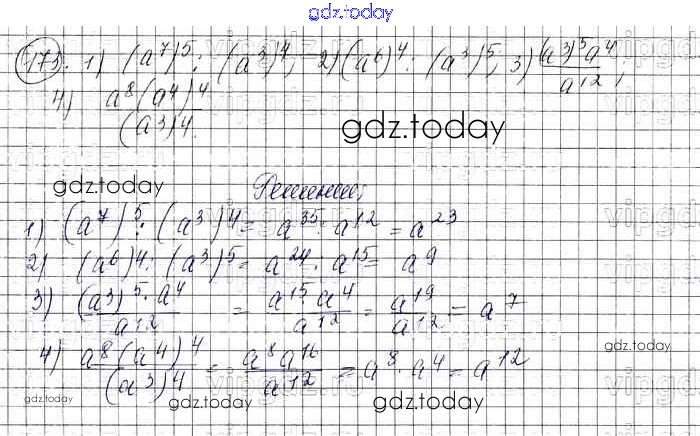 gdz.today
473. 1) (a⁷)⁵ : (a³)⁴; 2) (a⁶)⁴ : (a³)⁵; 3) (a³)⁵a⁴/a¹²;
4) a⁸(a⁴)⁴/(a³)⁴.
gdz.today
gdz.today
Решение;
1) (a⁷)⁵ : (a³)⁴ = a³⁵ : a¹² = a²³
2) (a⁶)⁴ : (a³)⁵ = a²⁴ : a¹⁵ = a⁹
3) (a³)⁵·a⁴/a¹² = a¹⁵·a⁴/a¹² = a¹⁹/a¹² = a⁷
gdz.today
4) a⁸(a⁴)⁴/(a³)⁴ = a⁸a¹⁶/a¹² = a⁸·a⁴ = a¹²
gdz.today
gdz.today
gdz.today